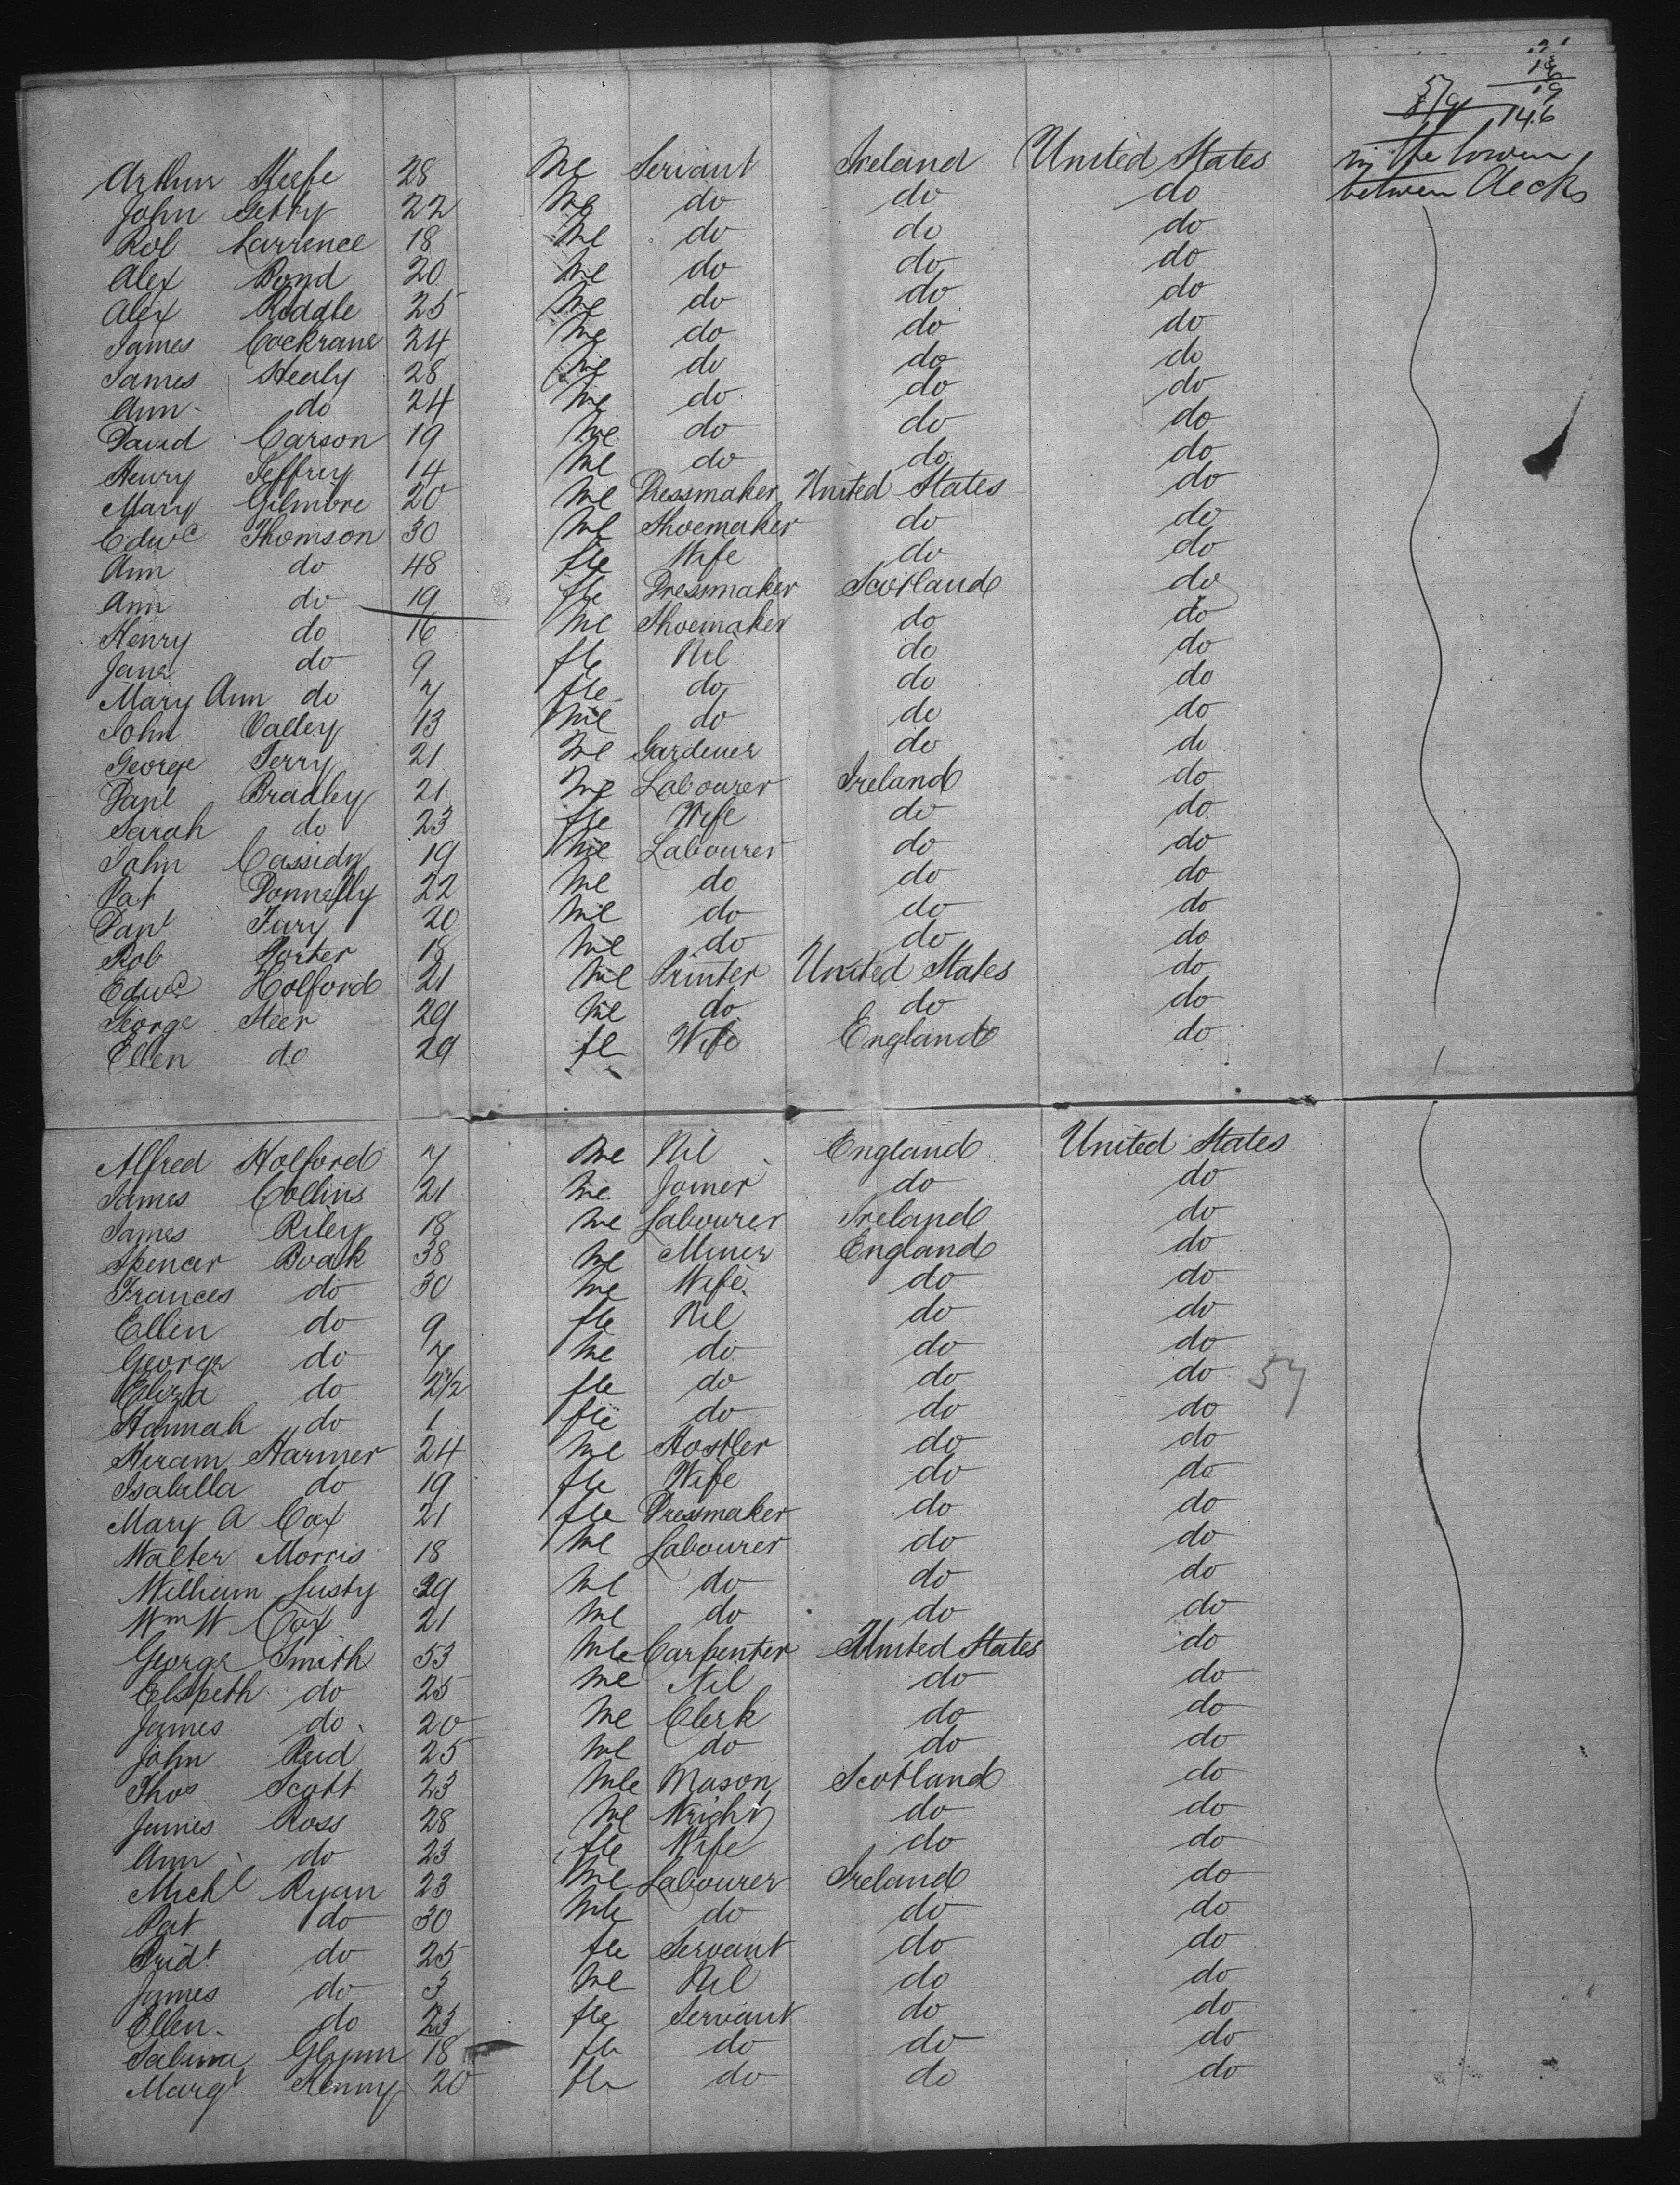 57 19
819 146
Arthur 28 Me Servant Ireland United States in the lower
John Getty 22 Me do do do between decks
Rob Lawrence 18 Me do do do
Alex Bond 20 Me do do do
Alex Riddle 25 Me do do do
James Cockrane 24 Me do do do
James Healy 28 Me do do do
Ann do 24 Me do do do
David Carson 19 Me do do do
Henry Jeffrey 14 Me do do do
Mary Gilmore 20 Me Dressmaker United States do
Edwd Thomson 30 Me Shoemaker do do
Ann do 48 fle Wife do do
Ann do 19 fle Dressmaker Scotland do
Henry do 16 Me Shoemaker do do
Jane do 9 fle Nil do do
Mary Ann do 7 fle do do do
John Valley 13 Me do do do
George Terry 21 Me Gardener do do
Danl Bradley 21 Me Labourer Ireland do
Sarah do 23 fle Wife do do
John Cassidy 19 Me Labourer do do
Pat Donnelly 22 Me do do do
Danl Fury 20 Me do do do
Rob Porter 18 Me do do do
Edwd Holford 21 Me Printer United States do
George Steer 29 Me do do do
Ellen do 29 fle Wife England do
Alfred Holford 7 Me Nil England United States
James Collins 21 Me Joiner do do
James Riley 18 Me Labourer Ireland do
Spencer Boak 38 Me Miner England do
Frances do 30 Me Wife do do
Ellen do 9 fle Nil do do
George do 7 Me do do do
Eliza do 2 1/2 fle do do do 57
Hannah do 1 fle do do do
Hiram Harmer 24 Me Hostler do do
Isabella do 19 fle Wife do do
Mary A Cox 21 fle Dressmaker do do
Walter Morris 18 Me Labourer do do
William Lusty 39 Me do do do
Wm W Cox 21 Me do do do
George Smith 53 Mle Carpenter United States do
Elspeth do 25 Me Nil do do
James do 20 Me Clerk do do
John Reid 25 Me do do do
Thos Scott 23 Mle Mason Scotland do
James Ross 28 Me Wright do do
Ann do 23 fle Wife do do
Michl Ryan 23 Me Labourer Ireland do
Pat do 30 Mle do do do
Bridt do 25 fle Servant do do
James do 3 Me Nil do do
Ellen do 23 fle Servant do do
Sabina Glynn 18 fle do do do
Margt Kenny 20 fle do do do